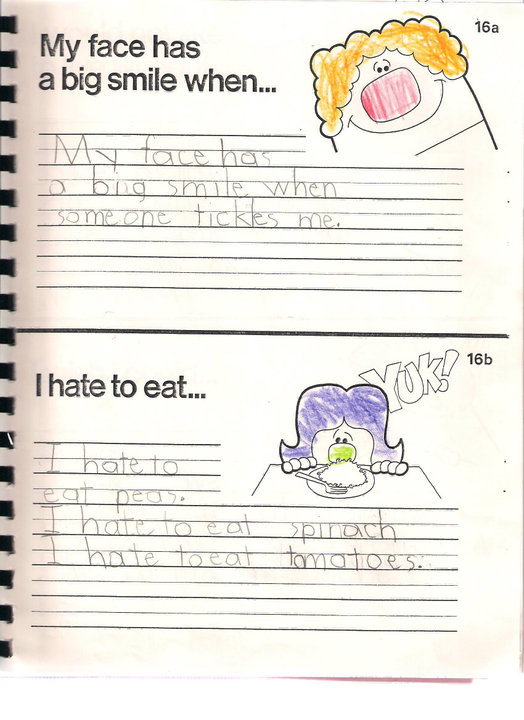 16a
My face has
a big smile when...
My face has
a big smile when
someone tickles me.
16b
YUK!
I hate to eat...
I hate to
eat peas.
I hate to eat spinach
I hate to eat tomatoes.